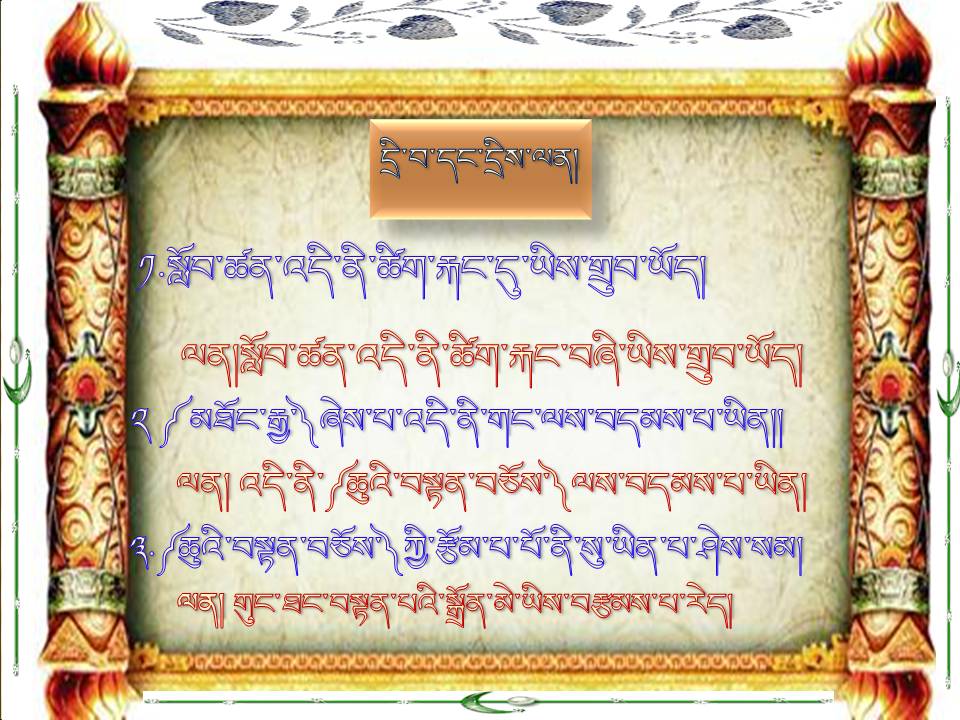 དྲི་བ་དང་དྲིས་ལན།
༡.སློབ་ཚན་འདི་ནི་ཚིག་རྐང་དུ་ཡིས་གྲུབ་ཡོད།
ལན།སློབ་ཚན་འདི་ནི་ཚིག་རྐང་བཞི་ཡིས་གྲུབ་ཡོད།
༢ ༼ མཐོང་རྒྱ༽ ཞེས་པ་འདི་ནི་གང་ལས་བདམས་པ་ཡིན།།
ལན། འདི་ནི་ ༼ཆུའི་བསྟན་བཅོས་༽ ལས་བདམས་པ་ཡིན།
༣.༼ཆུའི་བསྟན་བཅོས་༽ ཀྱི་རྩོམ་པ་པོ་ནི་སུ་ཡིན་པ་ཤེས་སམ།
ལན། གུང་ཐང་བསྟན་པའི་སྒྲོན་མེ་ཡིས་བརྩམས་པ་རེད།